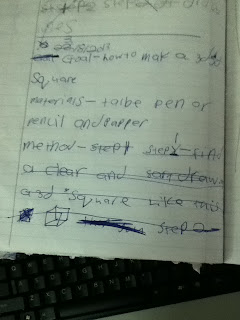 step
Goal-how to make a 3d
Square
materials- talbe pen or
pencil and papper
method- step1 step1- find
a clear and sort draw
a 3d square like this
step 2